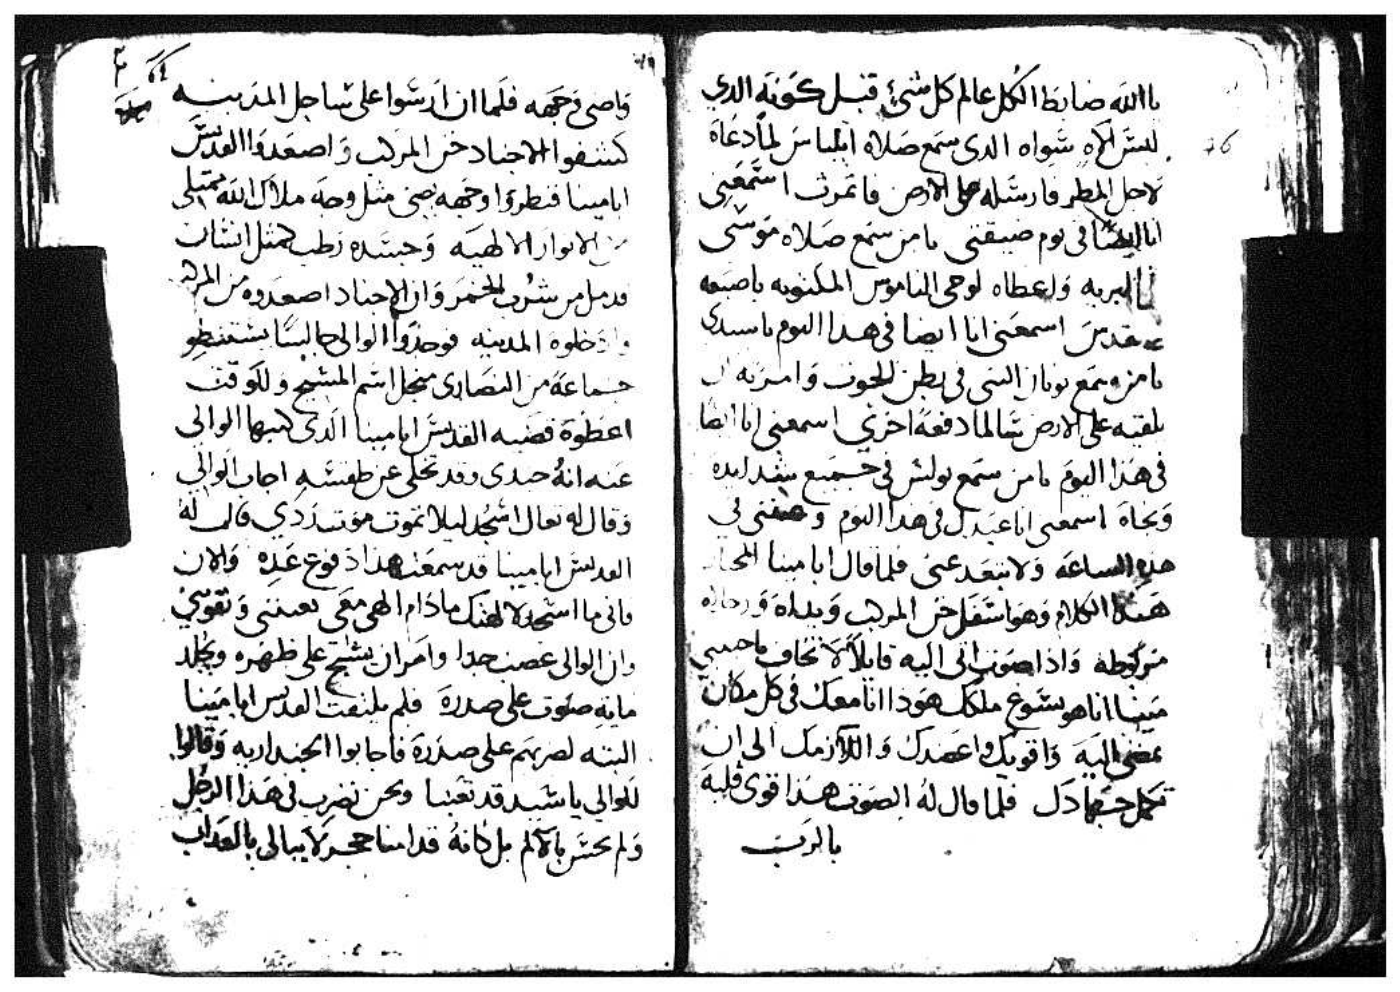 يا الله ضابط الكل عالم كل شئ قبل كونه الدي
ليس اله سواه الدى سمع صلاه ايلياس لما دعاه
لاجل المطر فارسله على الارض فاتمرت استمعنى
انا ايضا فى يوم ضيقتى يا من سمع صلاه موسى
البريه واعطاه لوحى الناموس المكتوبه باصبعه
اسمعنى انا ايضا فى هدا اليوم يا سيدى
يا من سمع يونان النبى فى بطن الحوت وامرته
يلقيه على الارض سالما دفعة اخري اسمعنى انا ايضا
فى هدا اليوم يا من سمع بولس فى جميع شدايده
ونجاه اسمعنى انا عبدك فى هدا اليوم و فى
هده الساعه ولا تبعد عنى فلما قال ابا مينا
هدا الكلام وهو اسفل خن المركب ويداه ورجلاه
مربوطه وادا صوت اتى اليه قايلا لا تخاف يا حبيبي
مينا انا هو يسوع ملكك هودا انا معك فى كل مكان
تمضى اليه واقويك واعضدك و الى ان
تكمل جهادك فلما قال له الصوت هدا قوى قلبه
بالرب
٦٤
واضى وجهه فلما ان ارسوا على ساحل المدينه
كشفوا الاجناد خن المركب واصعدوا القديس
ابا مينا فنظروا وجهه يضى مثل وجه ملاك الله ممتلى
من الانوار الالهيه وجسده رطب كمثل انسان
قد مل من شرب الخمر وان الاجناد اصعدوه من المركب
وادخلوه المدينه فوجدوا الوالى جالسا يستنطق
جماعة من النصارى من اجل اسم المسيح وللوقت
اعطوه قضيه القديس ابا مينا الدى كتبها الوالى
عنه انه جندى وقد تخلى عن طقسه اجاب الوالى
وقال له تعال اسجد ليلا تموت موت ردي قال له
القديس ابا مينا قد سمعت هدا دفوع عده والان
فانى ما اسجد لالهتك مادام الهى معى يعيننى ويقوينى
وان الوالى غضب جدا وامر ان يشبح على ظهره ويجلد
مايه صوت على صدره فلم يلتفت القديس ابا مينا
البته لضربهم على صدره فاجابوا الجند اربه وقالوا
للوالى يا سيد قد تعبنا ونحن نضرب فى هدا الرجل
ولم يحس بالالم بل كانه قدامنا حجر لا يبالى بالعداب